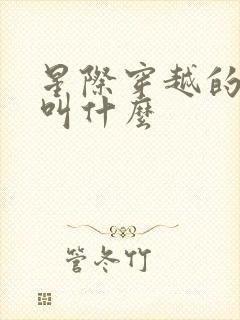 星際穿越的
叫什麼
管冬竹